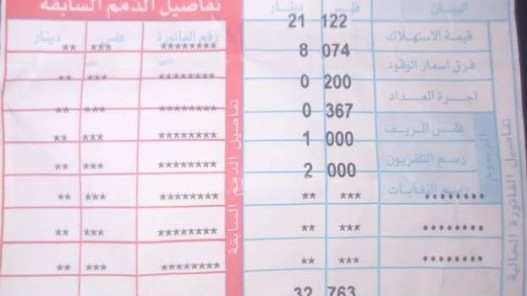 تفاصيل الذمم السابقة
رقم الفاتورة فلس دينار
******** *** **
******** *** **
******** *** **
******** *** **
******** *** **
******** *** **
******** *** **
******** *** **
تفاصيل الذمم السابقة
البيان فلس دينار
قيمة الاستهلاك 122 21
فرق اسعار الوقود 074 8
اجرة العداد 200 0
فلس الريف 367 0
رسم التلفزيون 000 1
رسم النفايات 000 2
******** *** **
******** *** **
******** *** **
763 32
الرسوم
تفاصيل الفاتورة الحالية